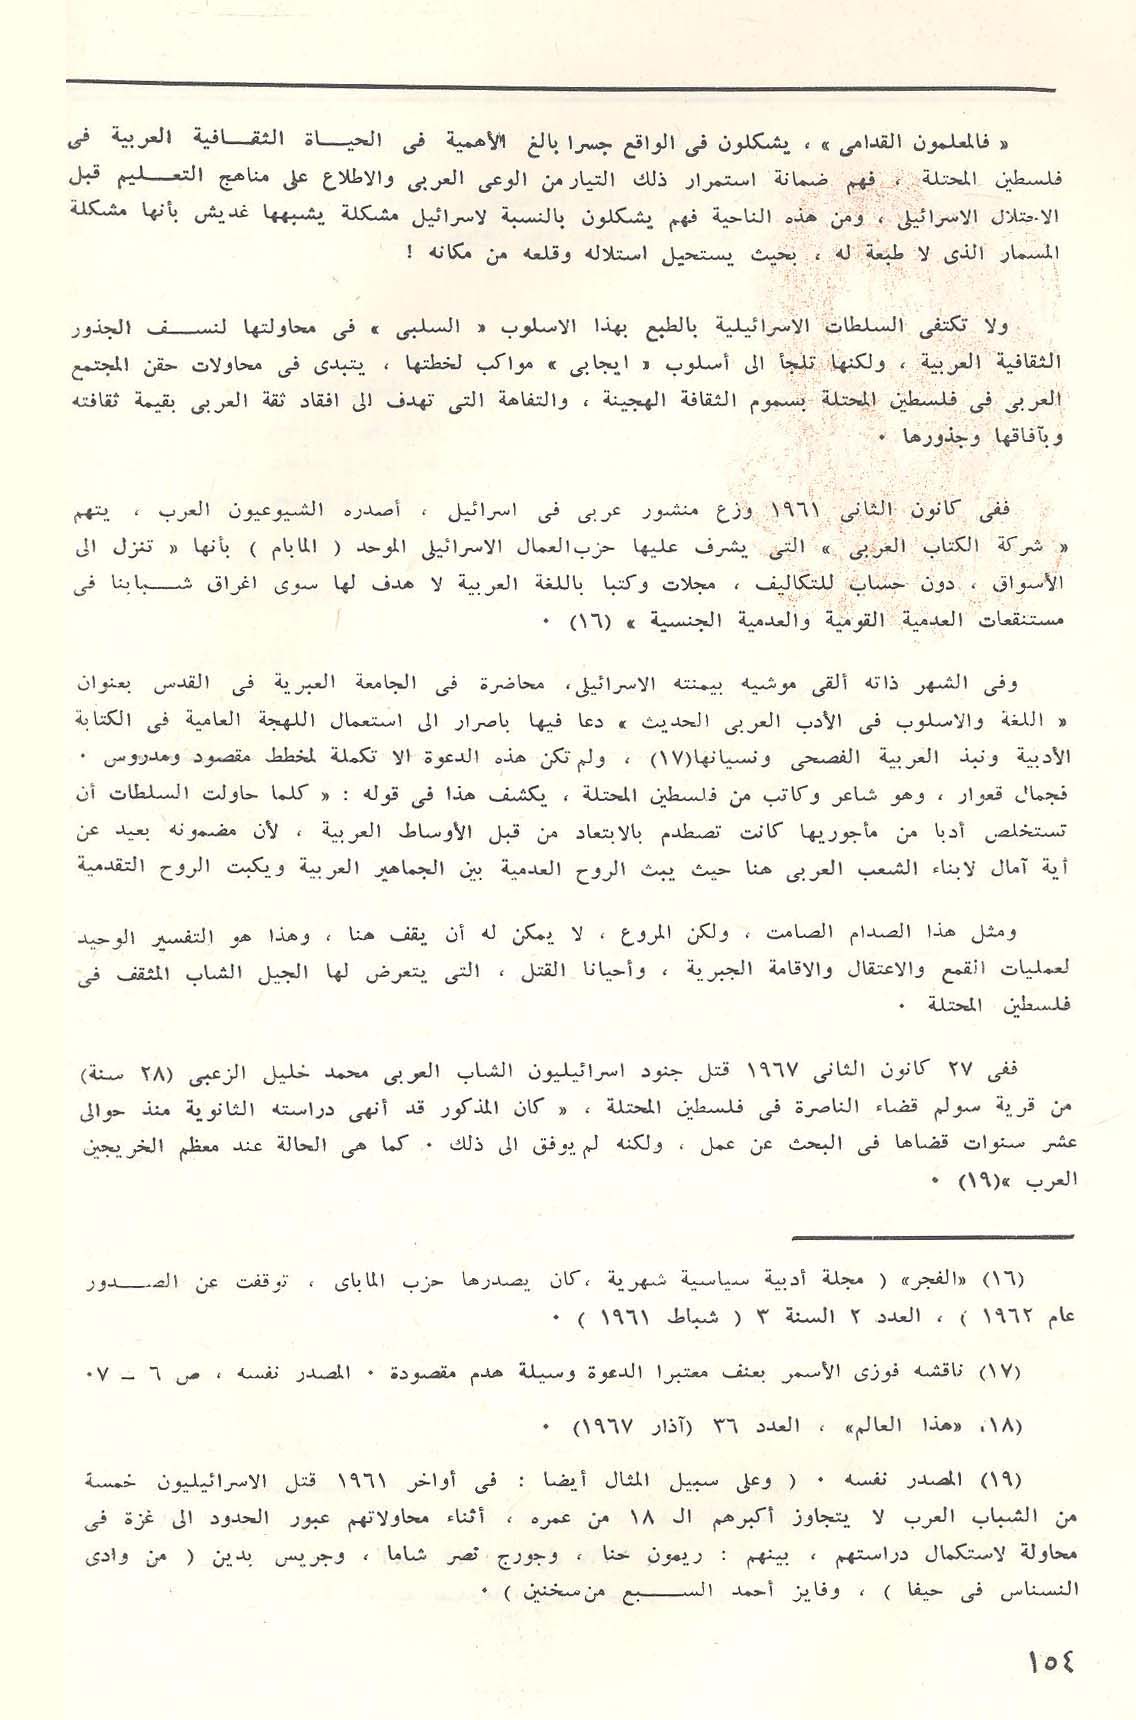 « فالمعلمون القدامى » ، يشكلون فى الواقع جسرا بالغ الأهمية فى الحيـــاة الثقـــافية العربية فى
فلسطين المحتلة ، فهم ضمانة استمرار ذلك التيار من الوعى العربى والاطلاع على مناهج التعـــليم قبل
الاحتلال الاسرائيلى ، ومن هذه الناحية فهم يشكلون بالنسبة لاسرائيل مشكلة يشبهها غديش بأنها مشكلة
المسمار الذى لا طبعة له ، بحيث يستحيل استلاله وقلعه من مكانه !
ولا تكتفى السلطات الاسرائيلية بالطبع بهذا الاسلوب « السلبى » فى محاولتها لنســـف الجذور
الثقافية العربية ، ولكنها تلجأ الى أسلوب « ايجابى » مواكب لخطتها ، يتبدى فى محاولات حقن المجتمع
العربى فى فلسطين المحتلة بسموم الثقافة الهجينة ، والتفاهة التى تهدف الى افقاد ثقة العربى بقيمة ثقافته
وبآفاقها وجذورها ٠
ففى كانون الثانى ١٩٦١ وزع منشور عربى فى اسرائيل ، أصدره الشيوعيون العرب ، يتهم
« شركة الكتاب العربى » التى يشرف عليها حزب العمال الاسرائيلى الموحد ( المابام ) بأنها « تنزل الى
الأسواق ، دون حساب للتكاليف ، مجلات وكتبا باللغة العربية لا هدف لها سوى اغراق شـــبابنا فى
مستنقعات العدمية القومية والعدمية الجنسية » (١٦) ٠
وفى الشهر ذاته ألقى موشيه بيمنته الاسرائيلى، محاضرة فى الجامعة العبرية فى القدس بعنوان
« اللغة والاسلوب فى الأدب العربى الحديث » دعا فيها باصرار الى استعمال اللهجة العامية فى الكتابة
الأدبية ونبذ العربية الفصحى ونسيانها(١٧) ، ولم تكن هذه الدعوة الا تكملة لمخطط مقصود ومدروس ٠
فجمال قعوار ، وهو شاعر وكاتب من فلسطين المحتلة ، يكشف هذا فى قوله : « كلما حاولت السلطات أن
تستخلص أدبا من مأجوريها كانت تصطدم بالابتعاد من قبل الأوساط العربية ، لأن مضمونه بعيد عن
أية آمال لابناء الشعب العربى هنا حيث يبث الروح العدمية بين الجماهير العربية ويكبت الروح التقدمية
ومثل هذا الصدام الصامت ، ولكن المروع ، لا يمكن له أن يقف هنا ، وهذا هو التفسير الوحيد
لعمليات القمع والاعتقال والاقامة الجبرية ، وأحيانا القتل ، التى يتعرض لها الجيل الشاب المثقف فى
فلسطين المحتلة ٠
ففى ٢٧ كانون الثانى ١٩٦٧ قتل جنود اسرائيليون الشاب العربى محمد خليل الزعبى (٢٨ سنة)
من قرية سولم قضاء الناصرة فى فلسطين المحتلة ، « كان المذكور قد أنهى دراسته الثانوية منذ حوالى
عشر سنوات قضاها فى البحث عن عمل ، ولكنه لم يوفق الى ذلك ٠ كما هى الحالة عند معظم الخريجين
العرب »(١٩) ٠
(١٦) «الفجر» ( مجلة أدبية سياسية شهرية ،كان يصدرها حزب الماباى ، توقفت عن الصـــدور
عام ١٩٦٢ ) ، العدد ٢ السنة ٣ ( شباط ١٩٦١ ) ٠
(١٧) ناقشه فوزى الأسمر بعنف معتبرا الدعوة وسيلة هدم مقصودة ٠ المصدر نفسه ، ص ٦ ــ ٧٠
(١٨، «هذا العالم» ، العدد ٣٦ (آذار ١٩٦٧) ٠
(١٩) المصدر نفسه ٠ ( وعلى سبيل المثال أيضا : فى أواخر ١٩٦١ قتل الاسرائيليون خمسة
من الشباب العرب لا يتجاوز أكبرهم الـ ١٨ من عمره ، أثناء محاولاتهم عبور الحدود الى غزة فى
محاولة لاستكمال دراستهم ، بينهم : ريمون حنا ، وجورج نصر شاما ، وجريس بدين ( من وادى
النسناس فى حيفا ) ، وفايز أحمد الســـبع من سخنين ) ٠
١٥٤